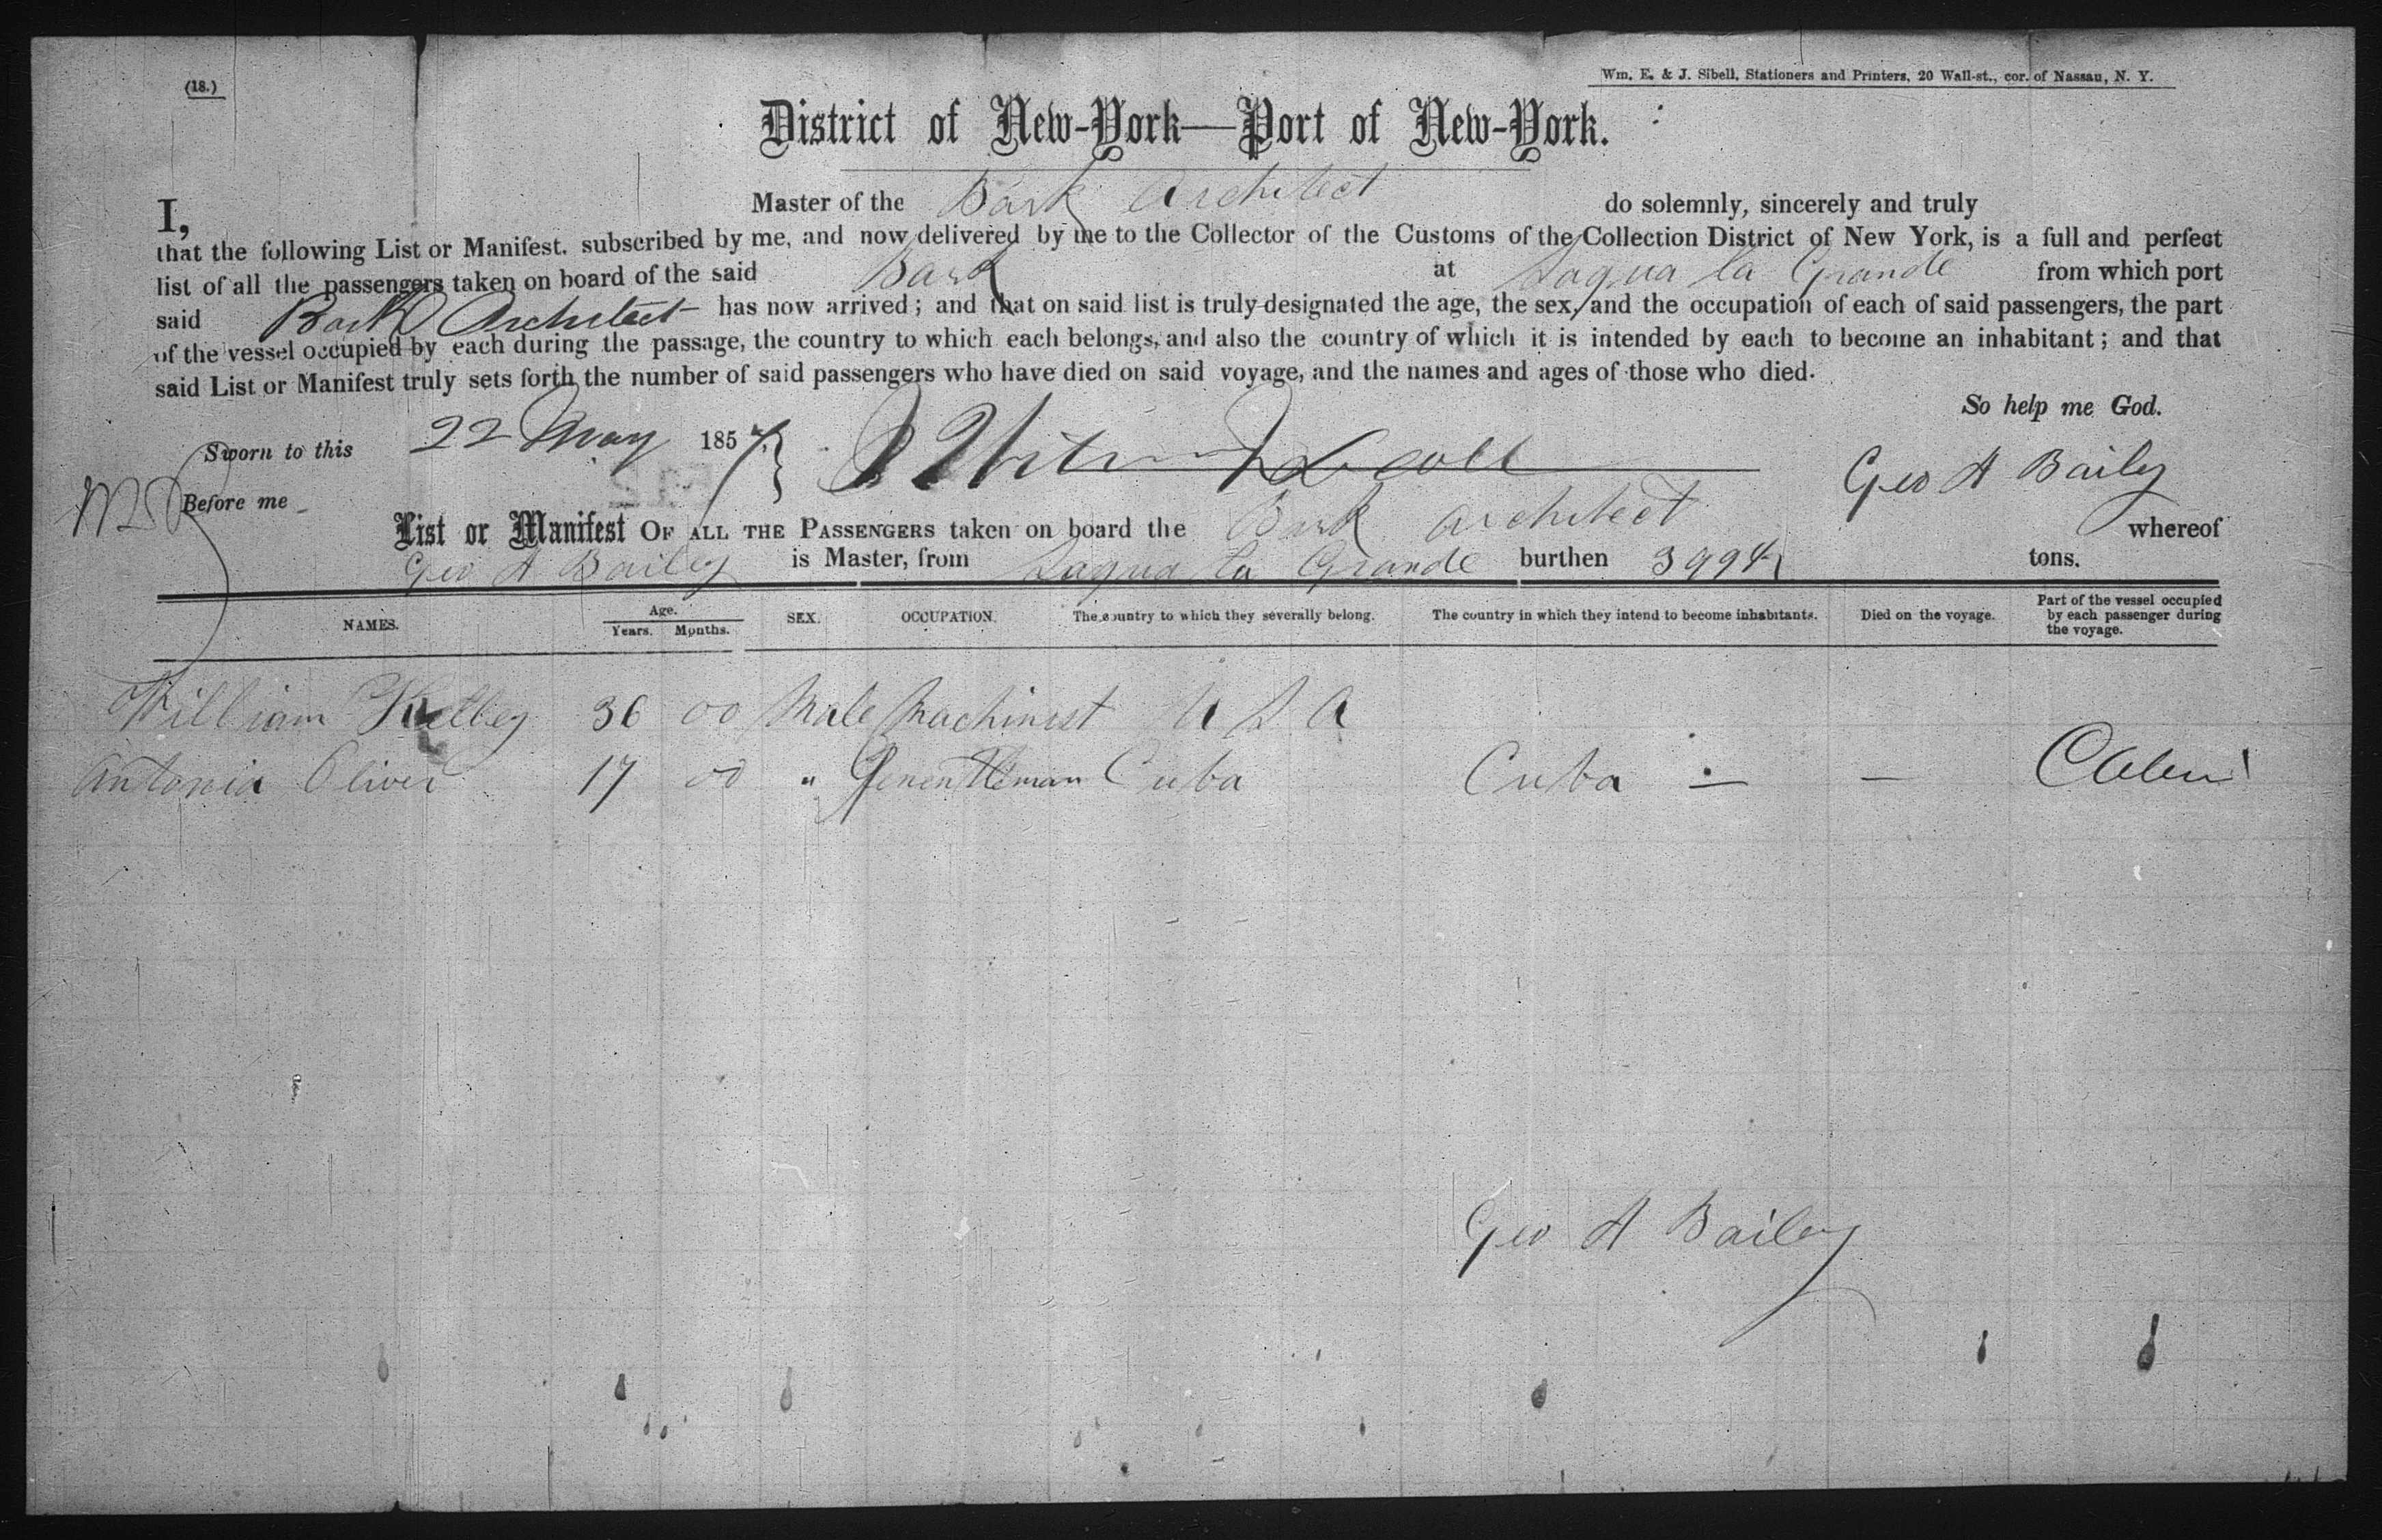 (18.)
Wm. E. & J. Sibell, Stationers and Printers, 20 Wall-st., cor. of Nassau, N. Y.
District of New-York—Port of New-York.
I, Master of the Bark Architect do solemnly, sincerely and truly
that the following List or Manifest. subscribed by me, and now delivered by me to the Collector of the Customs of the Collection District of New York, is a full and perfect
list of all the passengers taken on board of the said Bark at Sagua la Grande from which port
said Bark Architect has now arrived; and that on said list is truly designated the age, the sex, and the occupation of each of said passengers, the part
of the vessel occupied by each during the passage, the country to which each belongs, and also the country of which it is intended by each to become an inhabitant; and that
said List or Manifest truly sets forth the number of said passengers who have died on said voyage, and the names and ages of those who died.
So help me God.
Sworn to this 22 May 1857 Geo A Baily
Before me
List or Manifest OF ALL THE PASSENGERS taken on board the Bark Architect whereof
Geo A Bailey is Master, from Sagua la Grande burthen 399 tons.
NAMES. Age. Years. Months. SEX. OCCUPATION. The country to which they severally belong. The country in which they intend to become inhabitants. Died on the voyage. Part of the vessel occupied by each passenger during the voyage.
William 36 00 Male Machinist U S A
Antonia Oliver 17 00 " Genentleman Cuba Cuba — — Cabin
Geo A Bailey